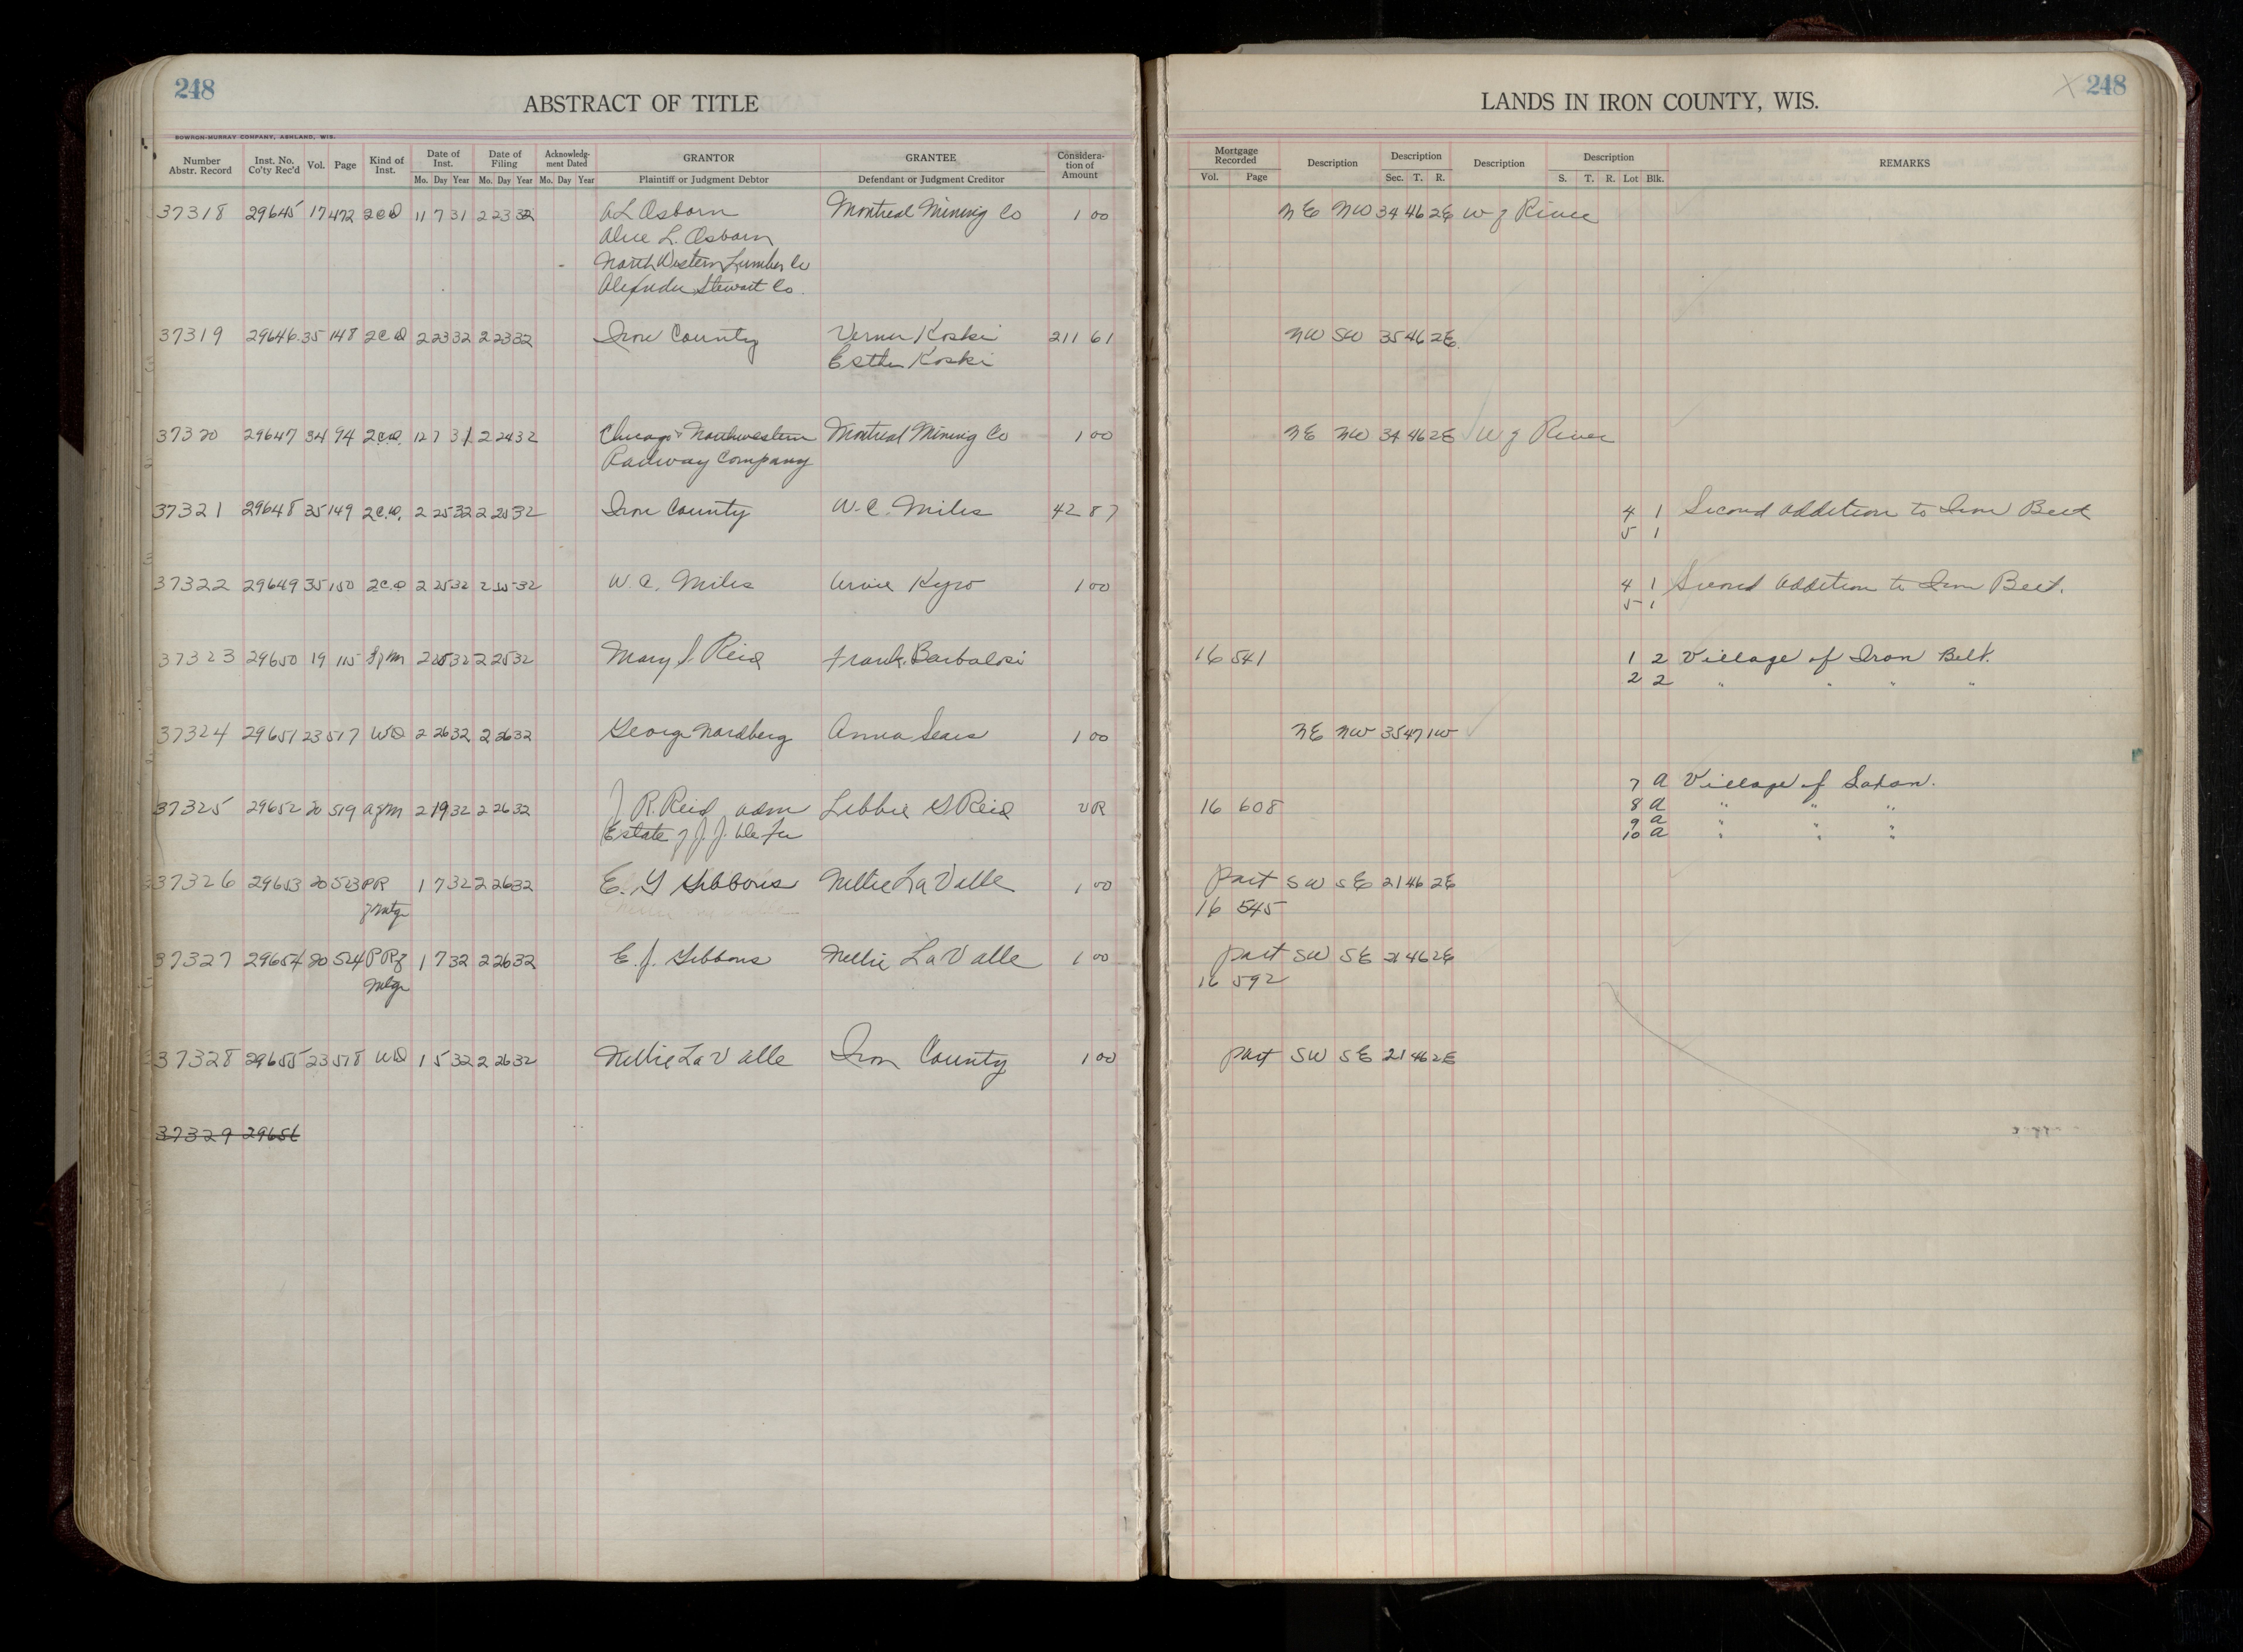 248
ABSTRACT OF TITLE
BOWRON-MURRAY COMPANY, ASHLAND, WIS.
Number Abstr. Record Inst. No. Co'ty Rec'd Vol. Page Kind of Inst. Date of Inst. Date of Filing Acknowledgment Dated GRANTOR GRANTEE Consideration of Amount
Mo. Day Year Mo. Day Year Mo. Day Year Plaintiff or Judgment Debtor Defendant or Judgment Creditor
37318 29645 17 472 2CD 11 7 31 2 23 32 A L Osborn Montreal Mining Co 1 00
Alice L. Osborn
North Western Lumber Co
Alexander Stewart Co.
37319 29646 35 148 2CD 2 23 32 2 23 32 Iron County Verner Koski 211 61
Esther Koski
37320 29647 34 94 2CD. 12 7 31 2 24 32 Chicago & Northwestern Montreal Mining Co 1 00
Railway Company
37321 29648 35 149 2C.D. 2 25 32 2 25 32 Iron County W. C. Miles 42 87
37322 29649 35 150 2CD 2 25 32 2 25 32 W. C. Miles Arvie Kyro 1 00
37323 29650 19 115 2 25 32 2 25 32 Mary S. Reid Frank Barbalosi
37324 29651 23 517 WD 2 26 32 2 26 32 George Nordberg Anna Sears 1 00
37325 29652 20 519 agm 2 19 32 2 26 32 J R. Reid adm Libbie G Reid VR
Estate of J. J.
37326 29653 20 523 PR 1 7 32 2 26 32 E. G Gibbons Nellie LaValle 1 00
of mtg
37327 29654 20 524 PR of 1 7 32 2 26 32 E. J. Gibbons Nellie LaValle 1 00
Mtge
37328 29655 23 518 WD 1 5 32 2 26 32 Nellie LaValle Iron County 1 00
37329 29656
248
LANDS IN IRON COUNTY, WIS.
Mortgage Recorded Description Description Description Description REMARKS
Vol. Page Sec. T. R. S. T. R. Lot Blk.
NE NW 34 46 2E W of River
NW SW 35 46 2E
NE NW 34 46 2E W of River
4 1 Second Addition to Iron Belt
5 1
4 1 Second Addition to Iron Belt.
5 1
16 541 1 2 Village of Iron Belt.
2 2 " " " "
NE NW 35 47 1W
7 A Village of Saxon.
16 608 8 A " " "
9 A " " "
10 A " " "
Part SW SE 21 46 2E
16 545
Part SW SE 21 46 2E
16 592
Part SW SE 21 46 2E